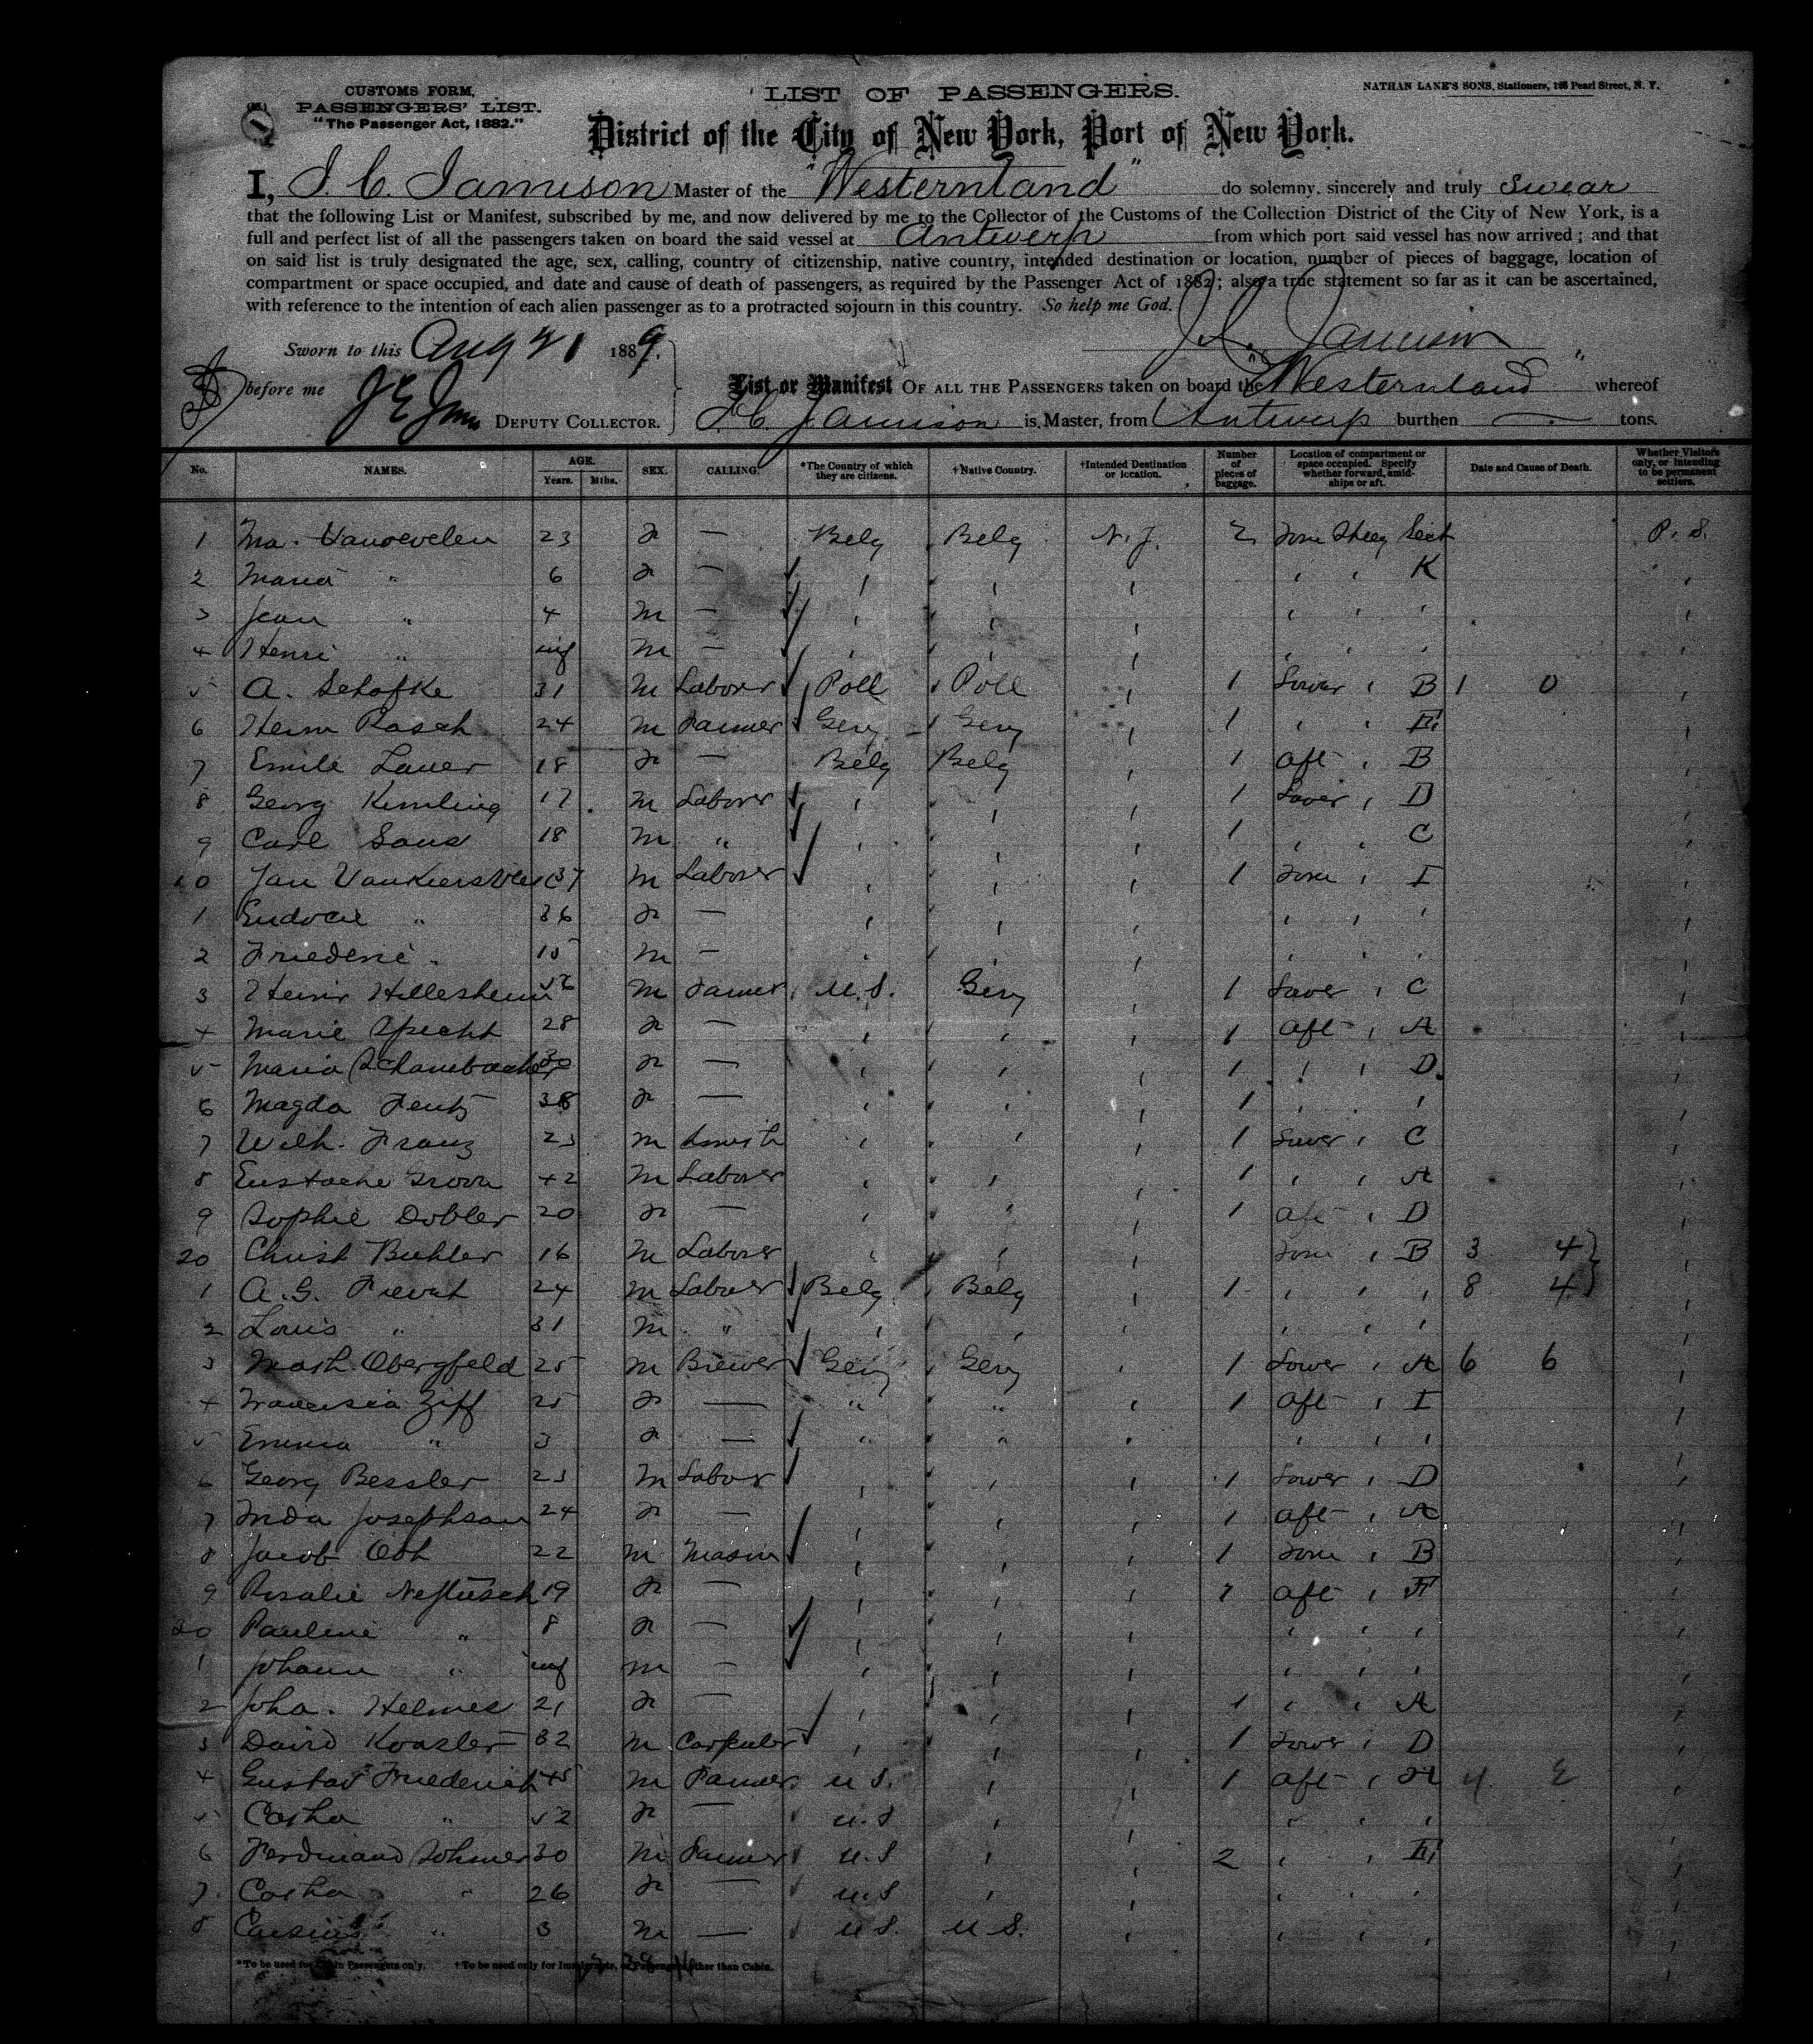 CUSTOMS FORM,
PASSENGERS' LIST.
"The Passenger Act, 1882."
LIST OF PASSENGERS.
NATHAN LANE'S SONS, Stationers, Pearl Street, N. Y.
District of the City of New York, Port of New York.
I, J. C. Jamison Master of the "Westernland" do solemny, sincerely and truly swear
that the following List or Manifest, subscribed by me, and now delivered by me to the Collector of the Customs of the Collection District of the City of New York, is a
full and perfect list of all the passengers taken on board the said vessel at Antwerp from which port said vessel has now arrived; and that
on said list is truly designated the age, sex, calling, country of citizenship, native country, intended destination or location, number of pieces of baggage, location of
compartment or space occupied, and date and cause of death of passengers, as required by the Passenger Act of 1882; also a true statement so far as it can be ascertained,
with reference to the intention of each alien passenger as to a protracted sojourn in this country. So help me God.
J. C. Jamison
Sworn to this Aug 21 1889.
before me DEPUTY COLLECTOR.
List or Manifest OF ALL THE PASSENGERS taken on board the "Westernland" whereof
J. C. Jamison is Master, from Antwerp burthen — tons.
No. NAMES. AGE. Years. Mths. SEX. CALLING. *The Country of which they are citizens. †Native Country. †Intended Destination or location. Number of pieces of baggage. Location of compartment or space occupied. Specify whether forward, amidships or aft. Date and Cause of Death. Whether Visitors only, or intending to be permanent settlers.
1 Ma. 23 — Belg Belg N.J. 2 P.S.
2 Maria " 6 — K
3 Jean " 4 M —
4 Henri " inf M —
5 A. Schofke 31 M Laborer Poll Poll 1 Lower B 1 0
6 Herm Rasch 24 M Farmer Gery Gery 1
7 Emile Lauer 18 — Belg Belg 1 Aft B
8 Georg Kimling 17 M Laborer 1 Lower D
9 Carl Sans 18 M " 1 C
10 Jan 37 M Laborer 1 I
1 " 36 —
2 Friederic " 15 M —
3 Heinr Hillesheim M Farmer U.S. Gery 1 Lower C
4 Marie Specht 28 — 1 Aft A
5 Maria Schambacher 30 — 1 D
6 Magda 38 — 1
7 Wilh. Franz 23 M Smith 1 Lower C
8 Eustache 42 M Laborer 1 A
9 Sophie Dobler 20 — 1 Aft D
20 Christ Buhler 16 M Laborer B 3 4
1 A.G. 24 M Laborer Belg Belg 1 8 4
2 Louis " 31 M "
3 Math Obergfeld 25 M Brewer Gery Gery 1 Lower A 6 6
4 Ziff 25 — " " 1 Aft I
5 Emma " 3 — " "
6 Georg Bessler 23 M Labor 1 Lower D
7 Josephson 24 — 1 Aft A
8 Jacob 22 M Mason 1 B
9 Rosalie 19 — 1 Aft
30 Pauline " 8 —
1 Johann " inf M —
2 Joha. Helmes 21 — 1 A
3 David Koasler 32 M Carpenter 1 Lower D
4 Gustav Friederich 45 M Farmer U.S. 1 Aft H
5 " 52 — U.S
6 Ferdinand Sohmer 30 M Farmer U.S 2
7 " 26 — U.S
8 " 3 M — U.S. U.S.
*To be used for Cabin Passengers only. †To be used only for Immigrants, or Passengers other than Cabin.